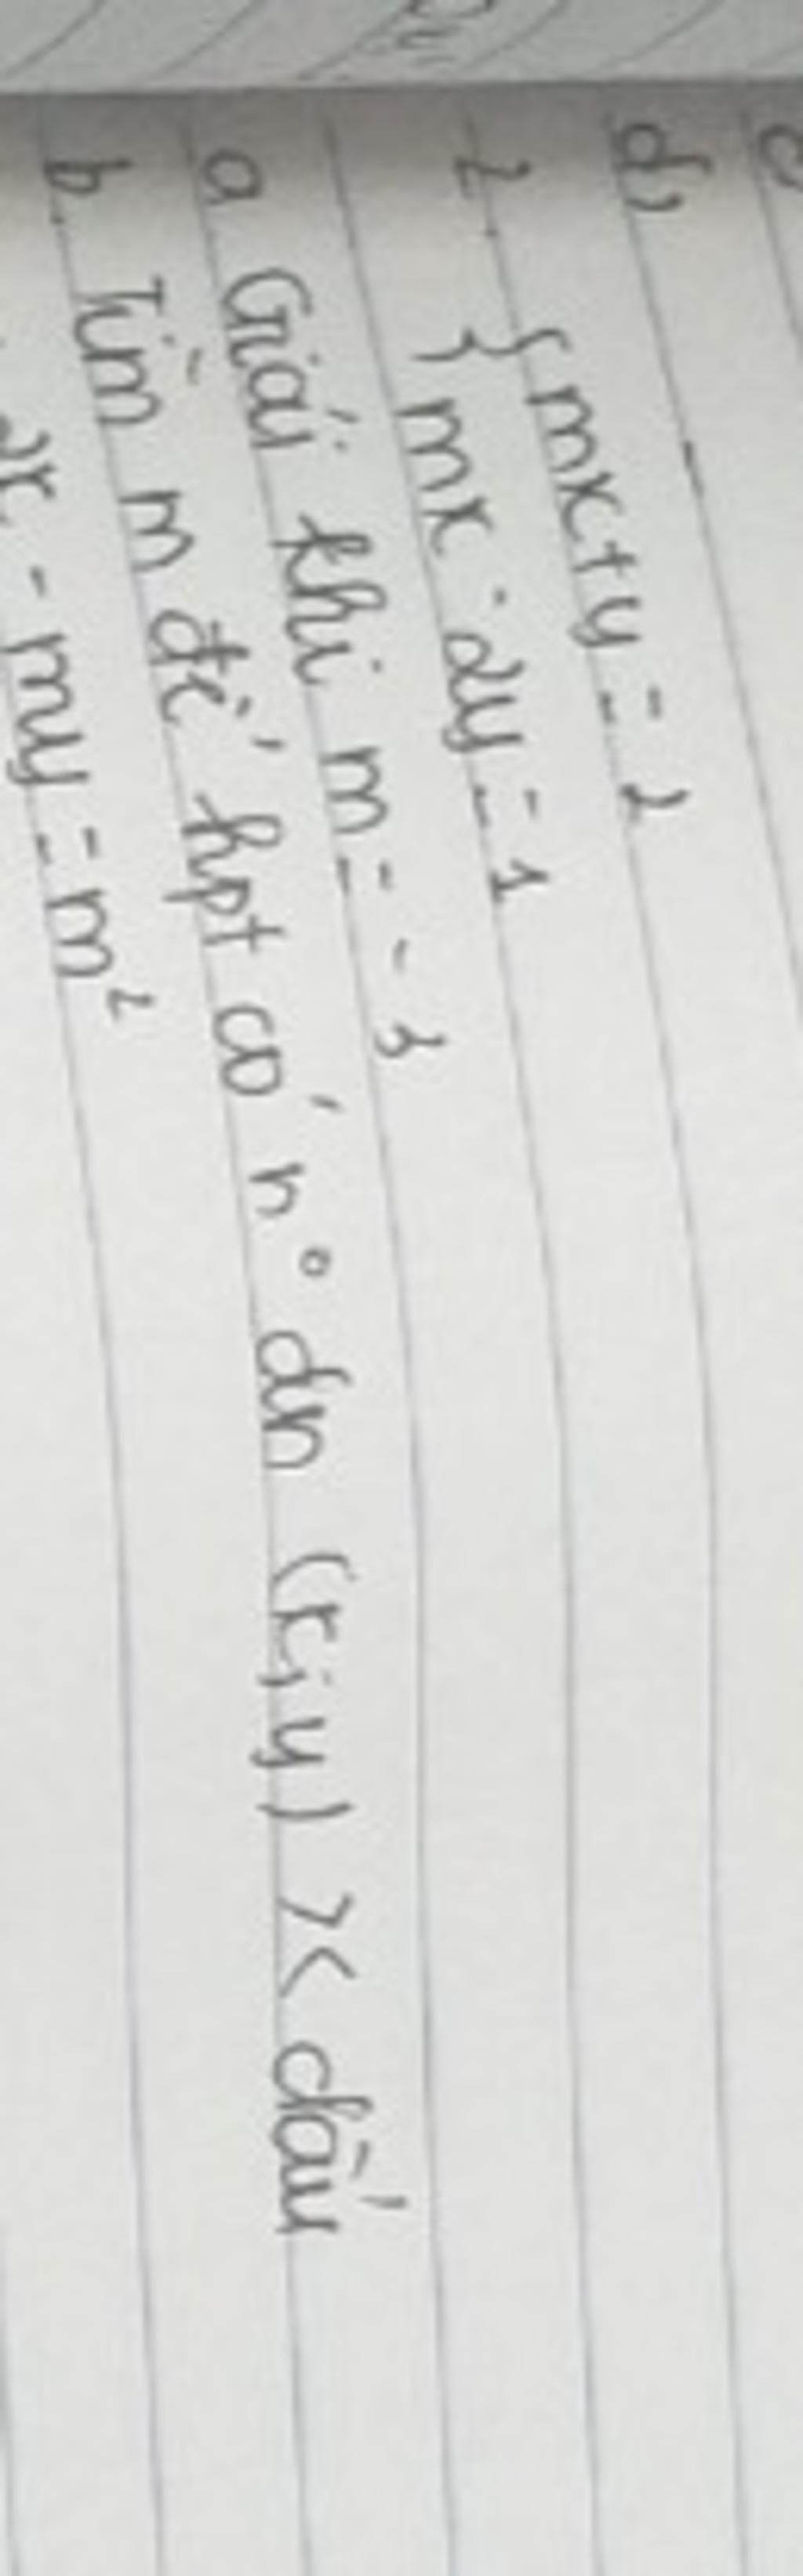 d,
2. { mx + y = 2
mx - 2y = 1
a Giải khi m = -3
b. Tìm m để hpt có nº dn (x, y) >< dấu
2x - my = m²